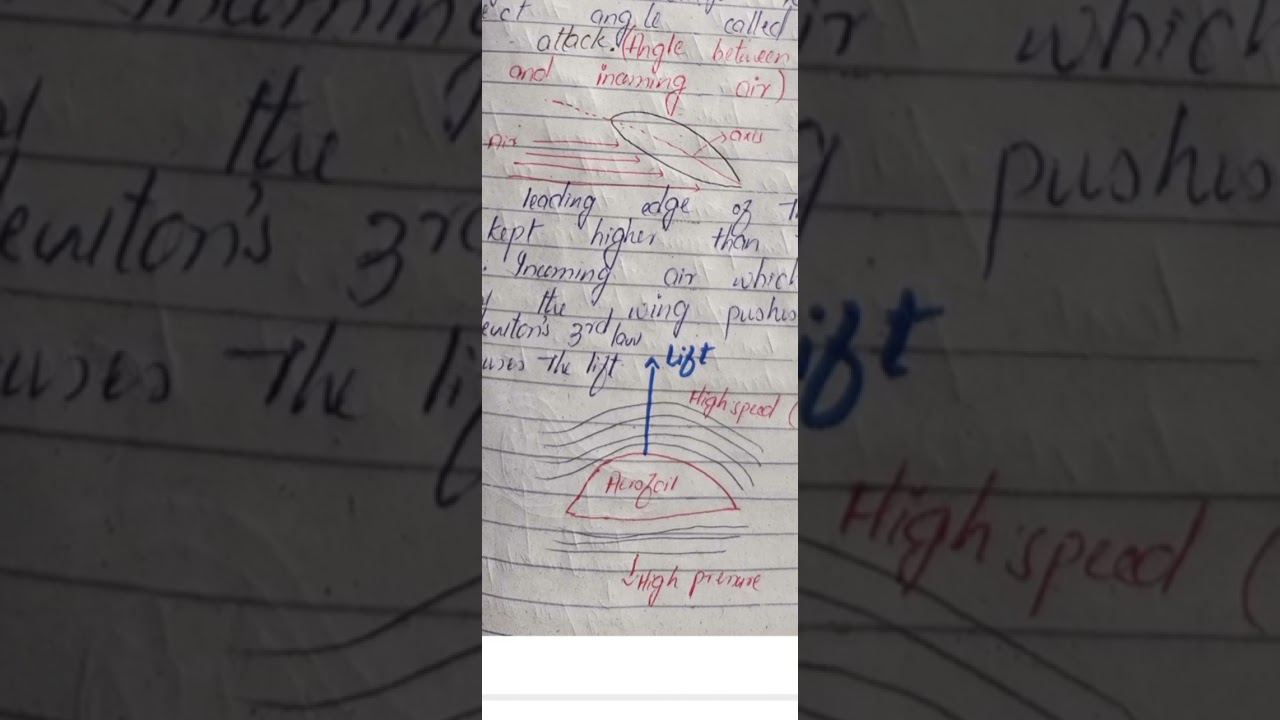 ect angle called
attack. (Angle between
and incoming air)
Air
axis
leading edge of
kept higher than
. Incoming air which
the wing pushes
ewton's 3rd law
uses The lift
Lift
High speed (
Aerofoil
↓ High pressure